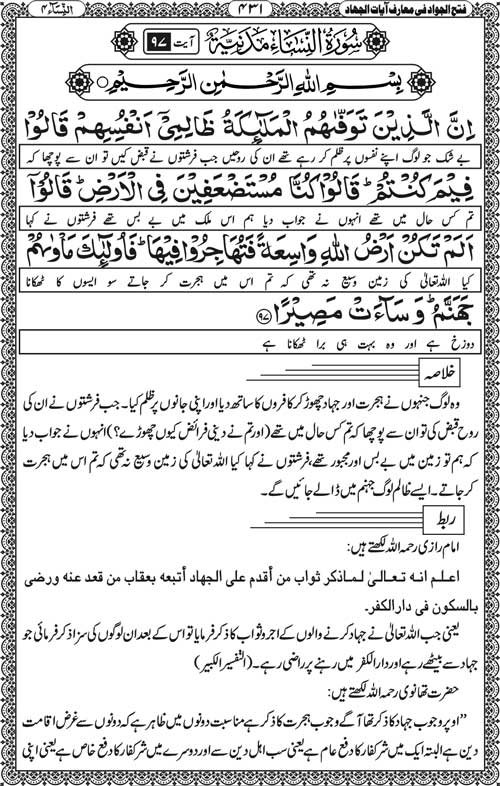 فتح الجواد فی معارف آیات الجهاد
۴۳۱
النساء ۴
سُوْرَةُ النِّسَاءِ مَدَنِيَّةٌ
آیت ۹۷
بِسْمِ اللهِ الرَّحْمٰنِ الرَّحِيْمِ
اِنَّ الَّذِيْنَ تَوَفّٰىهُمُ الْمَلٰٓئِكَةُ ظَالِمِيْٓ اَنْفُسِهِمْ قَالُوْا
بے شک جو لوگ اپنے نفسوں پر ظلم کر رہے تھے ان کی روحیں جب فرشتوں نے قبض کیں تو ان سے پوچھا کہ
فِيْمَ كُنْتُمْ ؕ قَالُوْا كُنَّا مُسْتَضْعَفِيْنَ فِي الْاَرْضِ ؕ قَالُوْٓا
تم کس حال میں تھے انہوں نے جواب دیا ہم اس ملک میں بے بس تھے فرشتوں نے کہا
اَلَمْ تَكُنْ اَرْضُ اللهِ وَاسِعَةً فَتُهَاجِرُوْا فِيْهَا ؕ فَاُولٰٓئِكَ مَاْوٰىهُمْ
کیا اللہ تعالیٰ کی زمین وسیع نہ تھی کہ تم اس میں ہجرت کر جاتے سو ایسوں کا ٹھکانا
جَهَنَّمُ ؕ وَسَآءَتْ مَصِيْرًا ۹۷
دوزخ ہے اور وہ بہت ہی برا ٹھکانا ہے
خلاصہ
وہ لوگ جنہوں نے ہجرت اور جہاد چھوڑ کر کافروں کا ساتھ دیا اور اپنی جانوں پر ظلم کیا۔ جب فرشتوں نے ان کی
روح قبض کی تو ان سے پوچھا کہ تم کس حال میں تھے (اور تم نے دینی فرائض کیوں چھوڑے؟) انہوں نے جواب دیا
کہ ہم تو زمین میں بے بس اور مجبور تھے، فرشتوں نے کہا کیا اللہ تعالیٰ کی زمین وسیع نہ تھی کہ تم اس میں ہجرت
کر جاتے۔ ایسے ظالم لوگ جہنم میں ڈالے جائیں گے۔
ربط
امام رازی رحمہ اللہ لکھتے ہیں:
اعلم انه تعالیٰ لماذكر ثواب من أقدم علی الجهاد أتبعه بعقاب من قعد عنه ورضی
بالسكون فی دار الكفر.
یعنی جب اللہ تعالیٰ نے جہاد کرنے والوں کے اجر و ثواب کا ذکر فرمایا تو اس کے بعد ان لوگوں کی سزا ذکر فرمائی جو
جہاد سے بیٹھے رہے اور دار الکفر میں رہنے پر راضی رہے۔ (التفسیر الکبیر)
حضرت تھانوی رحمہ اللہ لکھتے ہیں:
”اوپر وجوب جہاد کا ذکر تھا آگے وجوب ہجرت کا ذکر ہے مناسبت دونوں میں ظاہر ہے کہ دونوں سے غرض اقامت
دین ہے البتہ ایک میں شر کفار کا دفع عام ہے یعنی سب اہل دین سے اور دوسرے میں شر کفار کا دفع خاص ہے یعنی اپنی